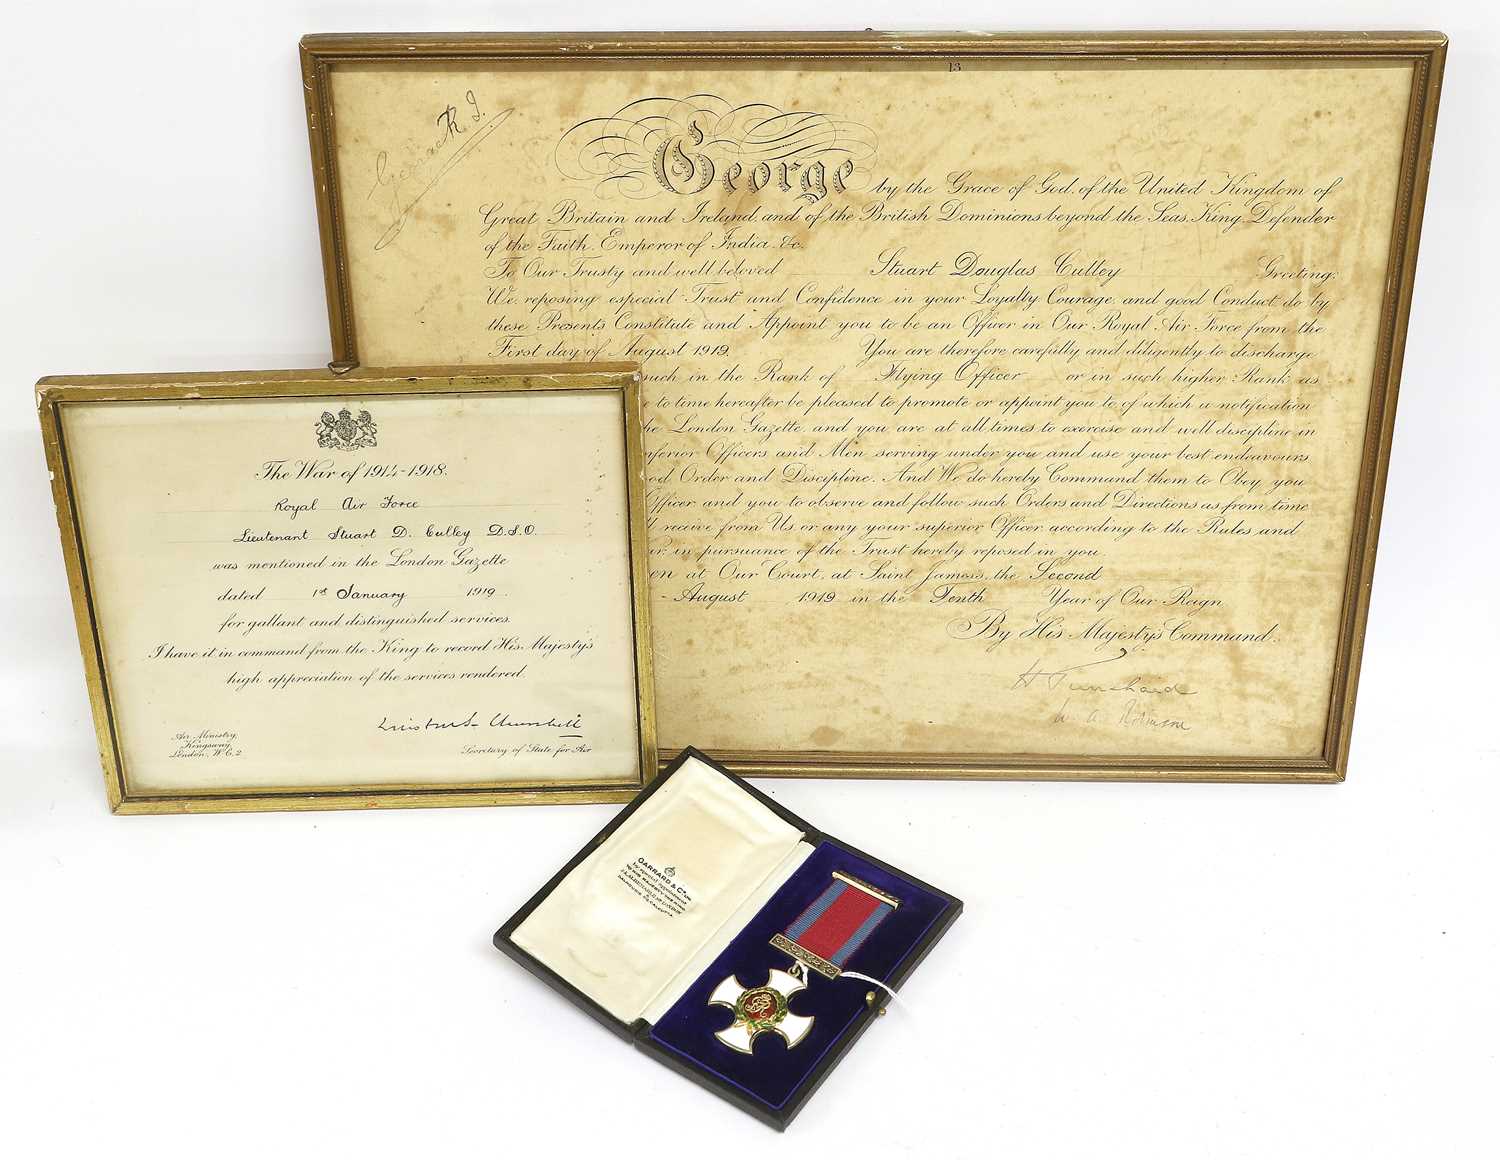 13
George R.I.
George by the Grace of God, of the United Kingdom of
Great Britain and Ireland, and of the British Dominions beyond the Seas, King, Defender
of the Faith, Emperor of India, &c.
To Our Trusty and well beloved Stuart Douglas Culley Greeting:
We, reposing especial Trust and Confidence in your Loyalty, Courage, and good Conduct, do by
these Presents Constitute and Appoint you to be an Officer in Our Royal Air Force from the
First day of August 1919. You are therefore carefully and diligently to discharge
such in the Rank of Flying Officer or in such higher Rank as
e to time hereafter be pleased to promote or appoint you to of which a notification
he London Gazette, and you are at all times to exercise and well discipline in
nferior Officers and Men serving under you and use your best endeavours
od Order and Discipline. And We do hereby Command them to Obey you
Officer and you to observe and follow such Orders and Directions as from time
receive from Us, or any your superior Officer, according to the Rules and
in pursuance of the Trust hereby reposed in you.
en at Our Court, at Saint James's, the Second
August 1919 in the Tenth Year of Our Reign
By His Majesty's Command.
W. A. Robinson
The War of 1914-1918.
Royal Air Force
Lieutenant Stuart D. Culley D.S.O.
was mentioned in the London Gazette
dated 1st January 1919.
for gallant and distinguished services.
I have it in command from the King to record His Majesty's
high appreciation of the services rendered.
Winston S. Churchill
Secretary of State for Air
Air Ministry,
Kingsway,
London, W.C.2.
GARRARD & Co. LTD
by special appointment
TO HIS MAJESTY THE KING
24 ALBEMARLE ST LONDON
&
CALCUTTA